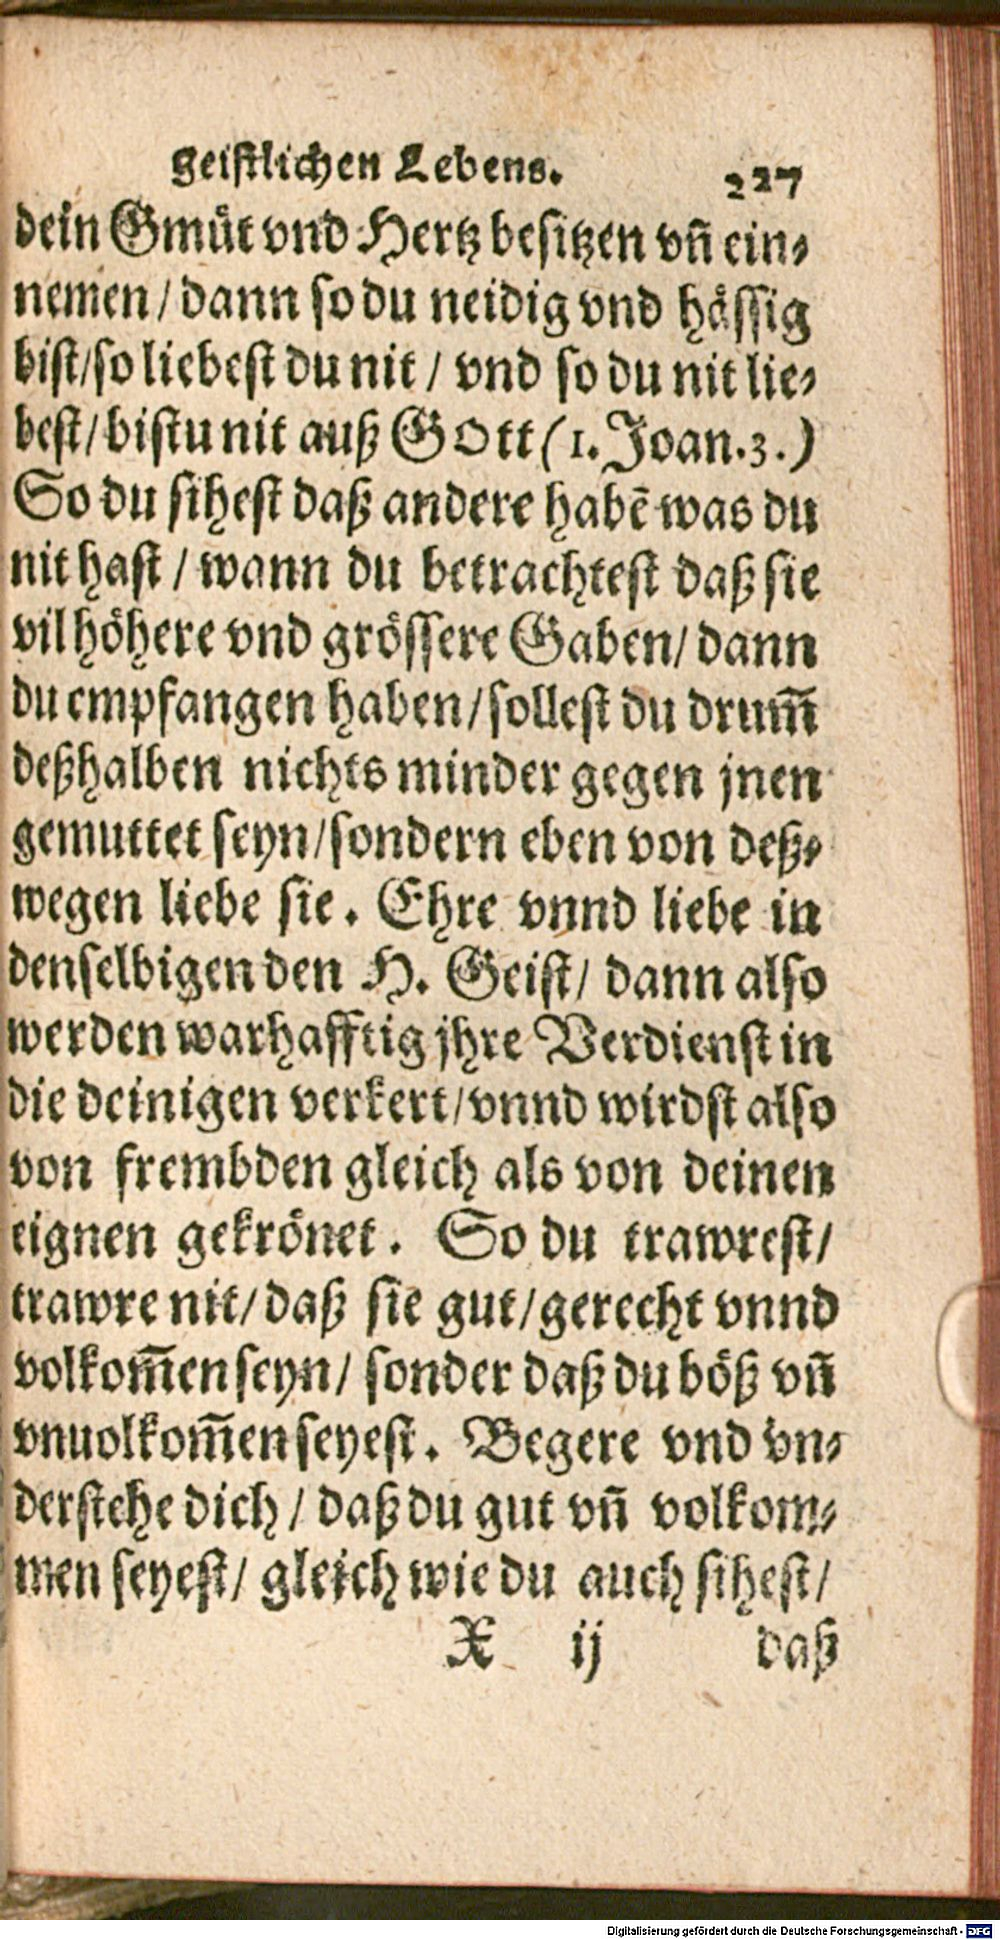 geistlichen Lebens. 227
dein Gmüt vnd Hertz besitzen vñ ein-
nemen / dann so du neidig vnd hässig
bist / so liebest du nit / vnd so du nit lie-
best / bistu nit auß GOtt (1. Joan. 3.)
So du sihest daß andere habẽ was du
nit hast / wann du betrachtest daß sie
vil höhere vnd grössere Gaben / dann
du empfangen haben / sollest du drum̃
deßhalben nichts minder gegen jnen
gemuttet seyn / sondern eben von deß-
wegen liebe sie. Ehre vnnd liebe in
denselbigen den H. Geist / dann also
werden warhafftig jhre Verdienst in
die deinigen verkert / vnnd wirdst also
von frembden gleich als von deinen
eignen gekrönet. So du trawrest /
trawre nit / daß sie gut / gerecht vnnd
volkom̃en seyn / sonder daß du böß vñ
vnuolkom̃en seyest. Begere vnd vn-
derstehe dich / daß du gut vñ volkom-
men seyest / gleich wie du auch sihest /
X ij daß
Digitalisierung gefördert durch die Deutsche Forschungsgemeinschaft - DFG